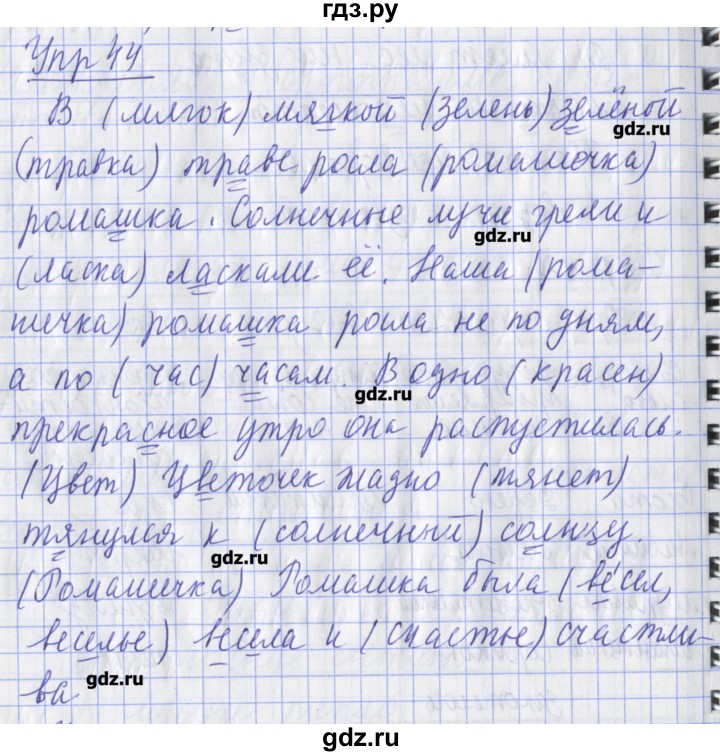 гдз.ру
Упр 44
В (мягок) мягкой (зелень) зелёной
гдз.ru
(травка) траве росла (ромашечка)
ромашка. Солнечные лучи грели и
гдз.ru
(ласка) ласкали её. Наша (рома-
шечка) ромашка росла не по дням,
а по (час) часам. В одно (красен)
gdz.ru
прекрасное утро она распустилась.
(Цвет) Цветочек жадно (тянет)
тянулся к (солнечный) солнцу.
gdz.ru
(Ромашечка) Ромашка была (весел,
веселье) весела и (счастье) счастли-
gdz.ru
ва
gdz.ru